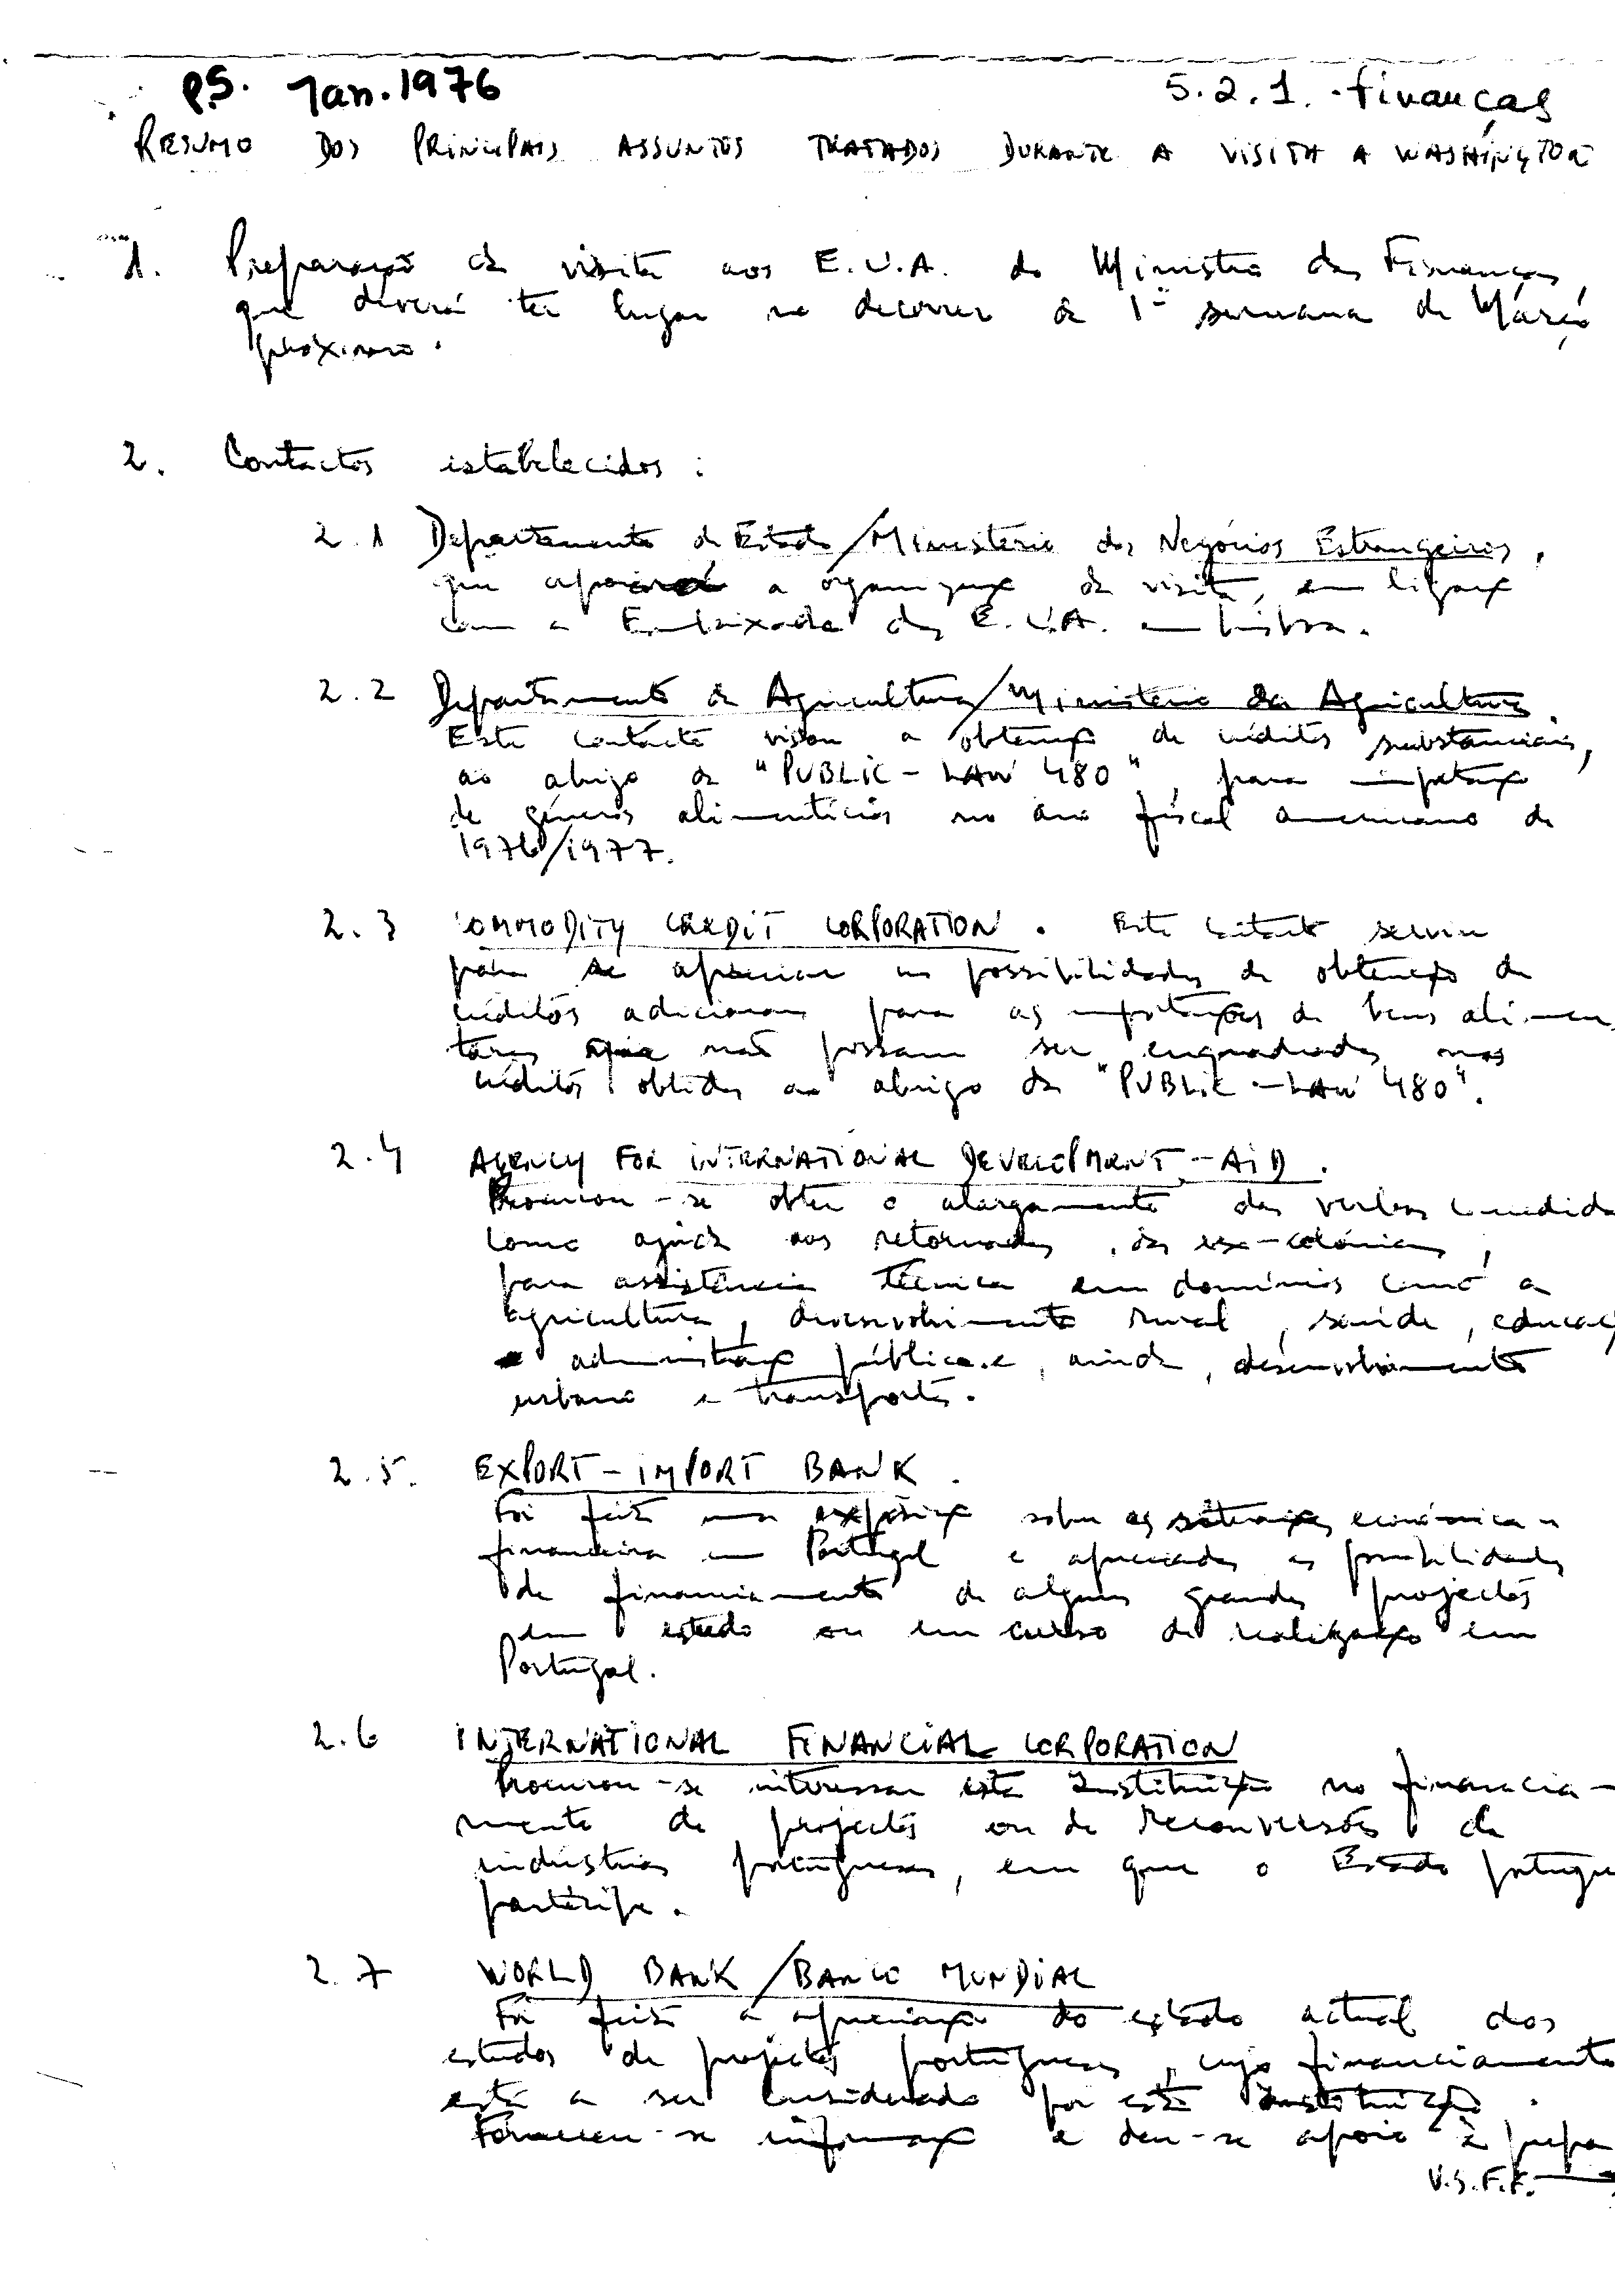 P.S. Jan. 1976 5.2.1. - finanças
RESUMO DOS PRINCIPAIS ASSUNTOS TRATADOS DURANTE A VISITA A WASHINGTON
1. Preparação da visita aos E.U.A. do Ministro das Finanças,
que deverá ter lugar no decorrer da 1ª semana de Março
próximo.
2. Contactos estabelecidos :
2.1 Departamento de Estado/Ministério dos Negócios Estrangeiros,
que apoiará a organização da visita, em ligação
com a Embaixada dos E.U.A. em Lisboa.
2.2 Departamento da Agricultura/Ministério da Agricultura.
Este contacto visou a obtenção de créditos substanciais,
ao abrigo da "PUBLIC-LAW 480", para importação
de géneros alimentícios no ano fiscal americano de
1976/1977.
2.3 COMMODITY CREDIT CORPORATION. Este contacto serviu
para se apreciar as possibilidades de obtenção de
créditos adicionais para as importações de bens alimen
tares que não possam ser enquadrados nos
créditos obtidos ao abrigo da "PUBLIC-LAW 480".
2.4 AGENCY FOR INTERNATIONAL DEVELOPMENT-AID.
Procurou-se obter o alargamento das verbas concedid
como ajuda aos retornados, das ex-colónias,
para assistência técnica em domínios como a
agricultura, desenvolvimento rural, saúde, educaç
administração pública e, ainda, desenvolvimento
urbano e transportes.
2.5. EXPORT-IMPORT BANK.
Foi feita uma exposição sobre as situações económica e
financeira em Portugal e apreciadas as possibilidades
de financiamento de alguns grandes projectos
em estudo ou em curso de realização em
Portugal.
2.6 INTERNATIONAL FINANCIAL CORPORATION
Procurou-se interessar esta Instituição no financia-
mento de projectos ou de reconversões de
indústrias portuguesas, em que o Estado portugu
participe.
2.7 WORLD BANK/BANCO MUNDIAL
Foi feita a apreciação do estado actual dos
estudos de projectos portugueses, cujo financiamento
está a ser considerado por esta Instituição.
Forneceu-se informação e deu-se apoio à prepa
V.S.F.F.